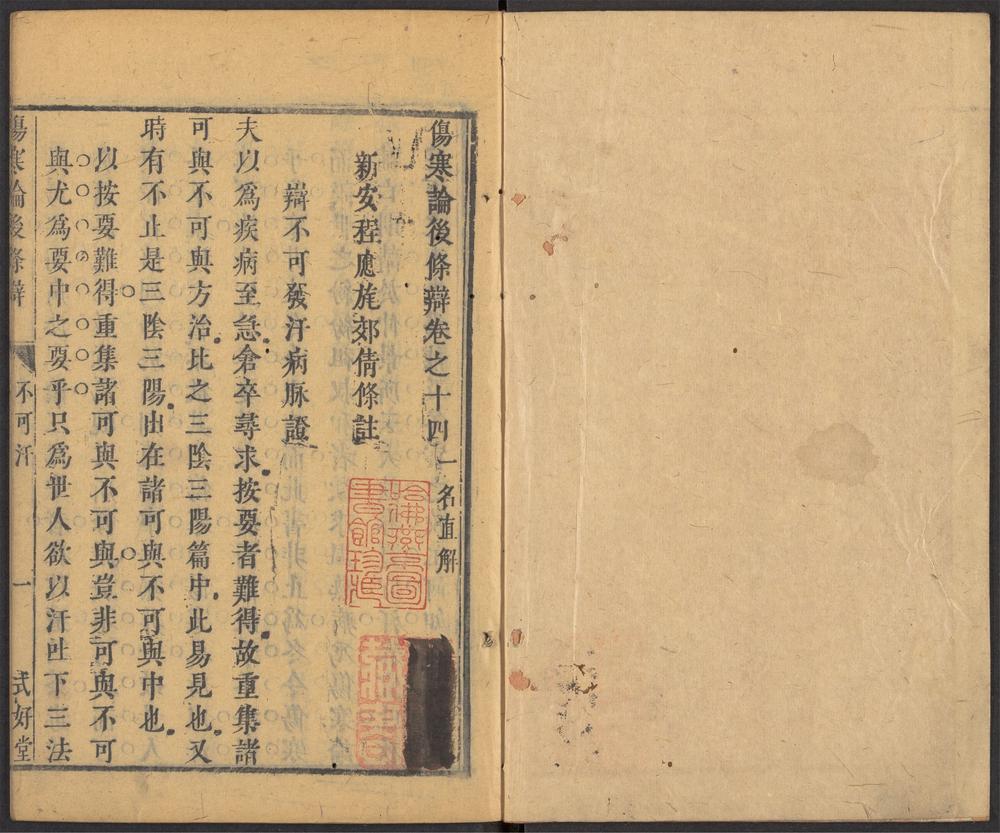 傷寒論後條辯卷之十四 一名直解
新安程應旄郊倩條註
辯不可發汗病脉證
夫以爲疾病至急倉卒尋求按要者難得故重集諸
可與不可與方治比之三陰三陽篇中此易見也又
時有不止是三陰三陽出在諸可與不可與中也
以按要難得重集諸可與不可與豈非可與不可
與尤爲要中之要乎只爲世人欲以汗吐下三法
傷寒論後條辯 不可汗 一 式好堂
哈佛燕京圖書館珍藏